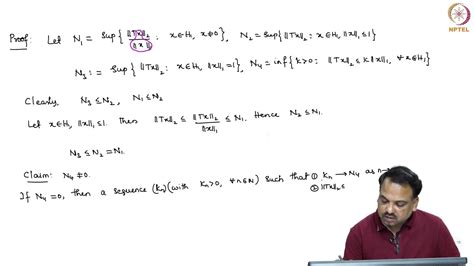 NPTEL
Proof: Let N₁ = Sup{ ||Tx||₂ / ||x|| : x∈H₁, x≠0 }, N₂ = Sup{ ||Tx||₂ : x∈H₁, ||x||≤1 }
N₃ := Sup{ ||Tx||₂ : x∈H₁, ||x||=1 }, N₄ = inf{ k>0 : ||Tx||₂ ≤ k||x||₁, ∀ x∈H₁ }
Clearly, N₃ ≤ N₂, N₁ ≤ N₂
Let x∈H₁, ||x||₁ ≤ 1. Then ||Tx||₂ ≤ ||Tx||₂ / ||x||₁ ≤ N₁. Hence N₂ ≤ N₁.
N₃ ≤ N₂ = N₁.
Claim: N₄ ≠ 0.
If N₄ = 0, then a sequence (Kₙ) (with Kₙ>0, ∀ n∈ℕ) such that ① Kₙ → N₄ as n→
② ||Tx||₂ ≤